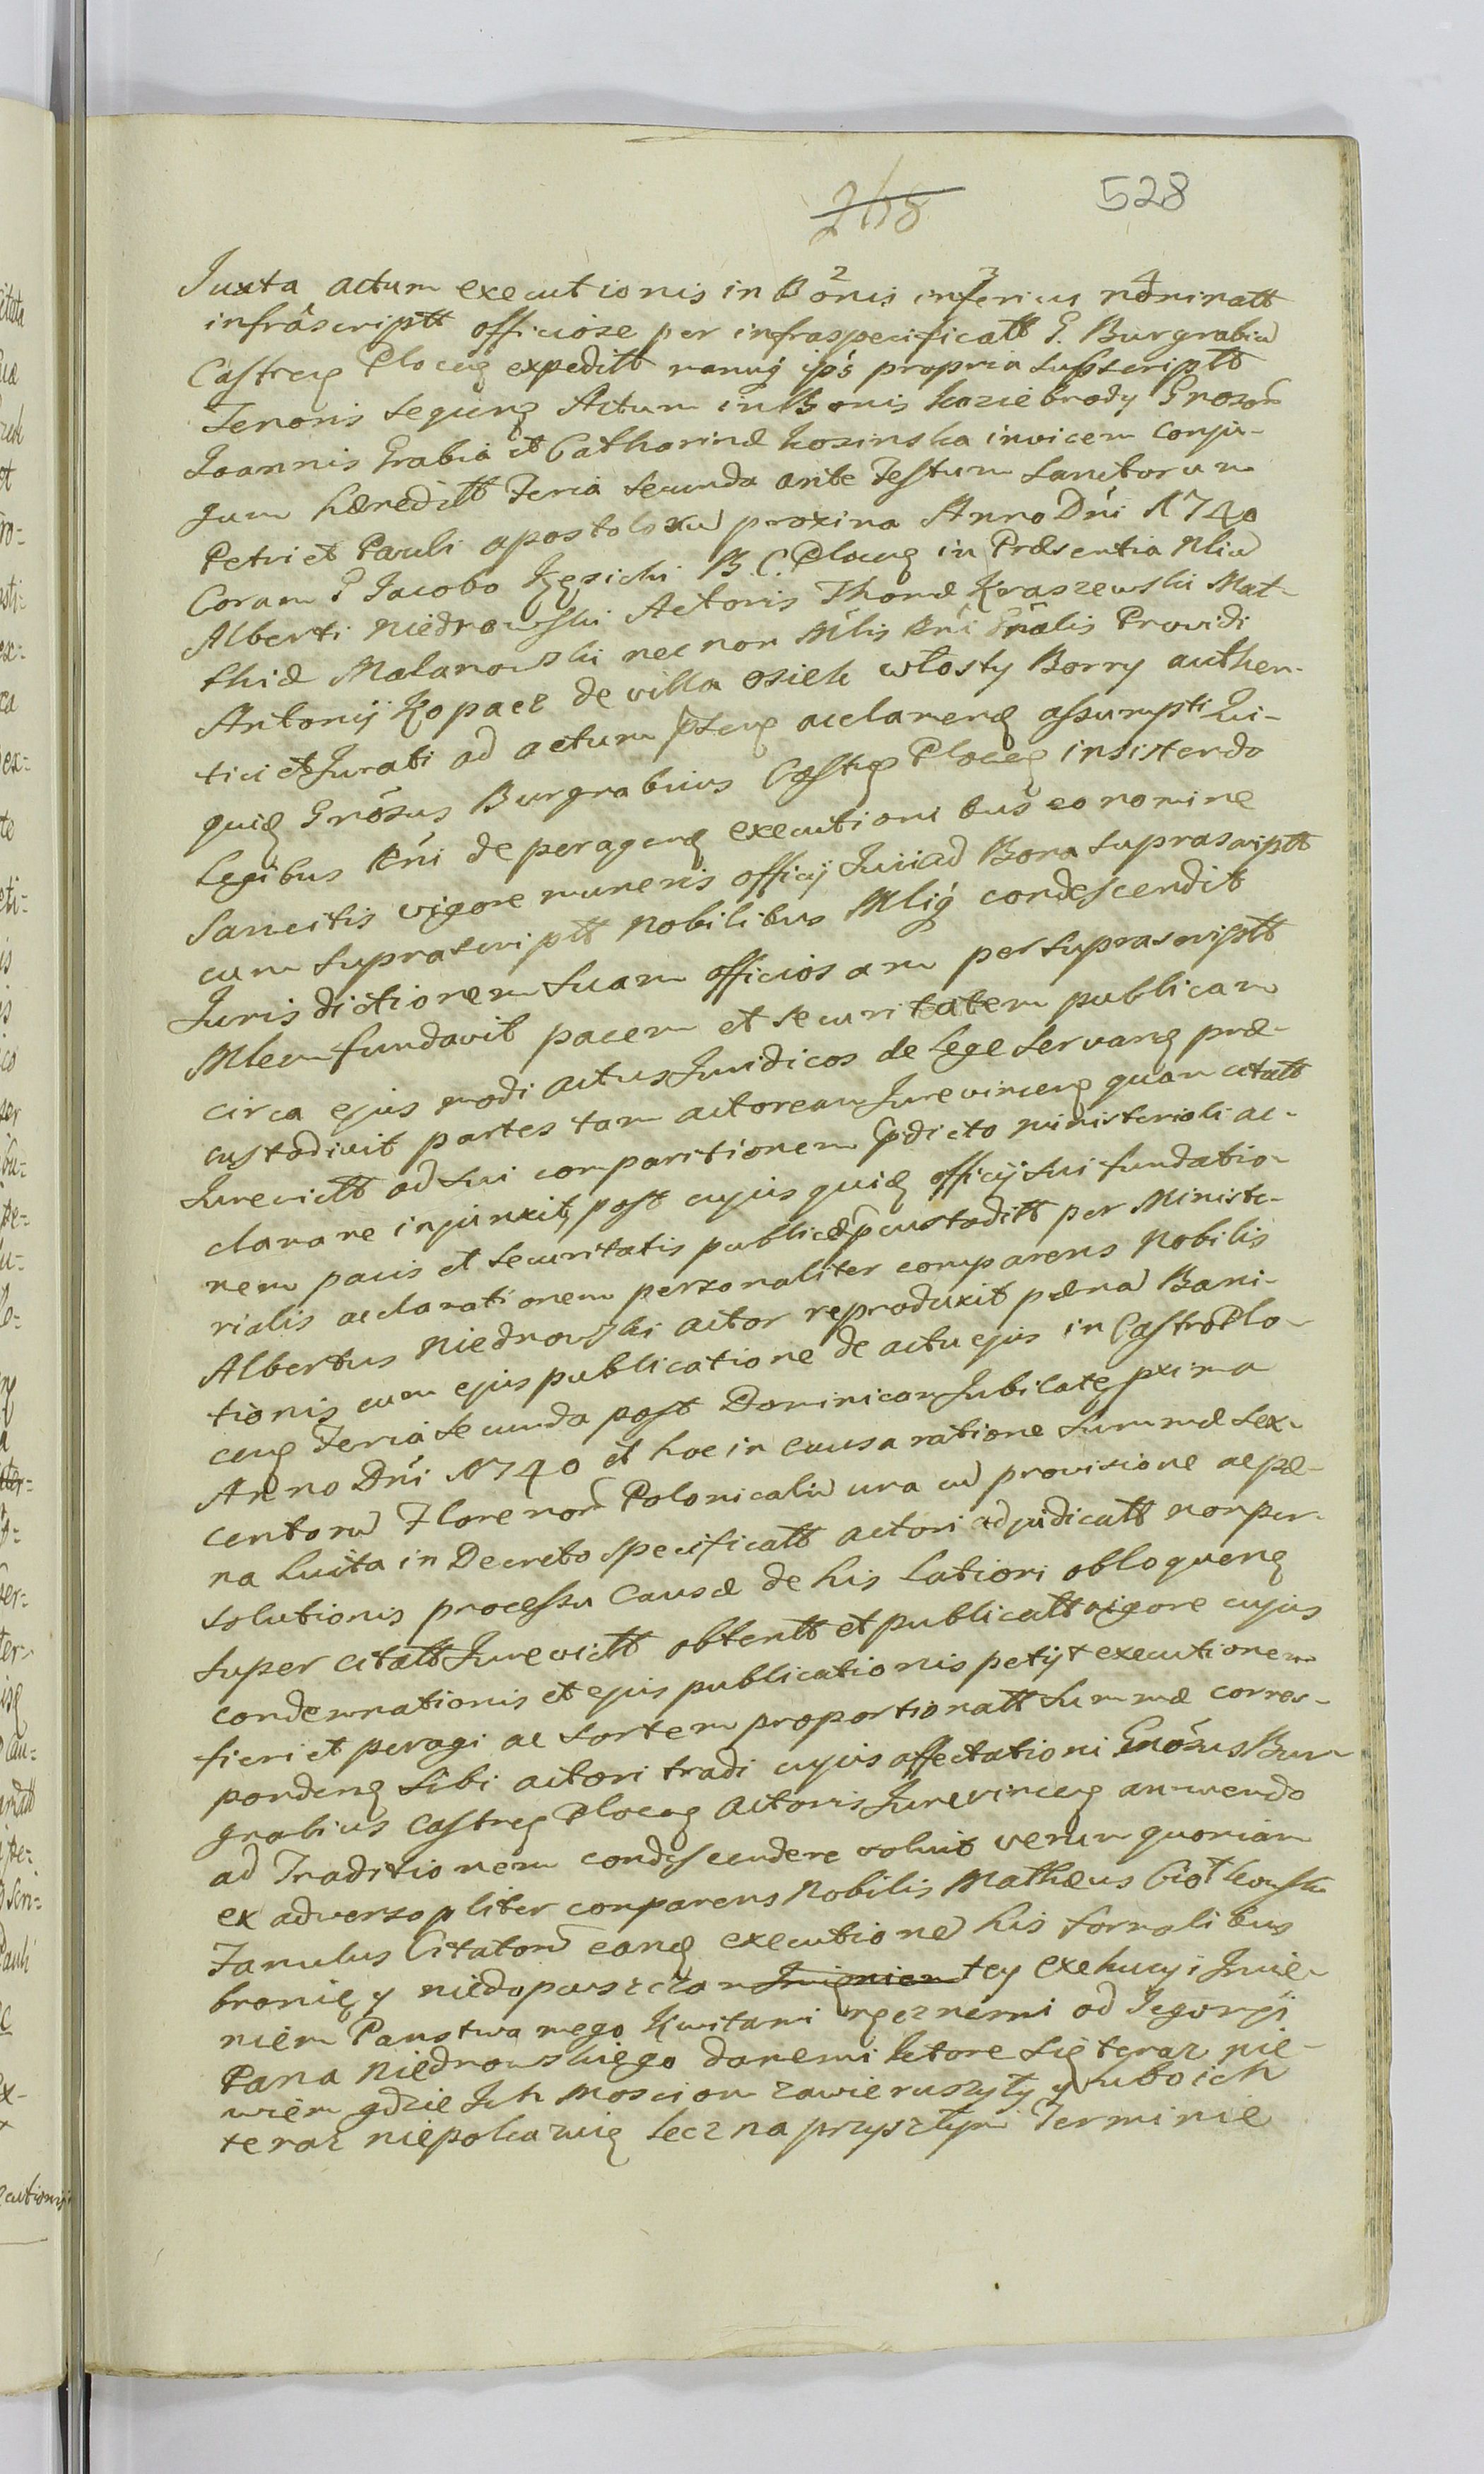 528
Juxta actum executionis in Bonis inferius noninatt
infrascriptt officiose per infraspecificatt G. Burgrabiu
Castreng Ploceng expeditt manuq ips propria subscriptt
Tenoris sequeng Actum in Bonis koziebrody Gnoson
Joannis Grabia et Catharinæ kosinska invicem conju-
gum hæreditt Feria secunda ante Festum Sanctorum
Petri et Pauli apostoloru proxima Anno Dni 1740
Coram G Jacobo B. C. Ploceng in Præsentia Nliu
Alberti Niedrowski Actoris Thomæ Kraszewski Mat-
thiæ Malanowski nec non Mlis Rni Gnalis Providi
Antonij Kopacz de villa osiek włosty Borry authen-
tici et Jurati ad actum pseng acclamang assumpti Qui-
quid Gnosus Burgrabius Castrg Ploceng insistendo
Legibus Rni de peragend executionibus eo nomine
Sancitis vigore muneris officij Suii ad Bona suprascriptt
cum suprascriptt Nobilibus Mliq condescendit
Jurisdictionem suam officiosam per suprascriptt
Mlem fundavit pacem et securitatem publicam
circa ejus modi actus Juridicos de lege servang præ-
custodivit partes tam actoream Jurevinceng quam citatt
Jurevictt ad sui comparitionem pdicto ministeriali ac-
clamare injunxit, post cujus quid officij sui fundatio-
nem pacis et securitatis publicæ pcustoditt per Ministe-
rialis acclamationem personaliter comparens Nobilis
Albertus Niedrowski actor reproduxit pæna Bani-
tionis cum ejus publicatione de actu ejus in Castro Plo-
ceng Feria secunda post Dominicam Jubilate pxima
Anno Dni 1740 et hoc in causa ratione summæ sex-
centoru Florenon Polonicaliu una cu provisione ac pæ-
na luita in Decreto specificatt actori adjudicatt nonper-
solutionis processu causæ de his latiori obloqueng
super citatt Jurevictt obtentt et publicatt vigore cujus
condemnationis et ejus publicationis petijt executionem
fieri et peragi ac sortem proportionatt summæ corres-
pondeng sibi actori tradi cujus affectationi Gnosus Bur-
grabius Castreng Ploceng actoris Jurevinceng annuendo
ad Traditionem condescendere voluit verum quoniam
ex adverso pliter comparens Nobilis Mathæus
Famulus Citaton eand executione his formalibus
bronię y niedopuszczam tey Exekucyi Jmie-
niem Panstwa mego Kwitami ręcznemi od Jegomsci
Pana Niedrowskiego danemi ktore się teraz nie-
wiem gdzie Jch Mosciom zawieruszyły y lubo ich
teraz niepokazuię lecz na przyszłym Terminie